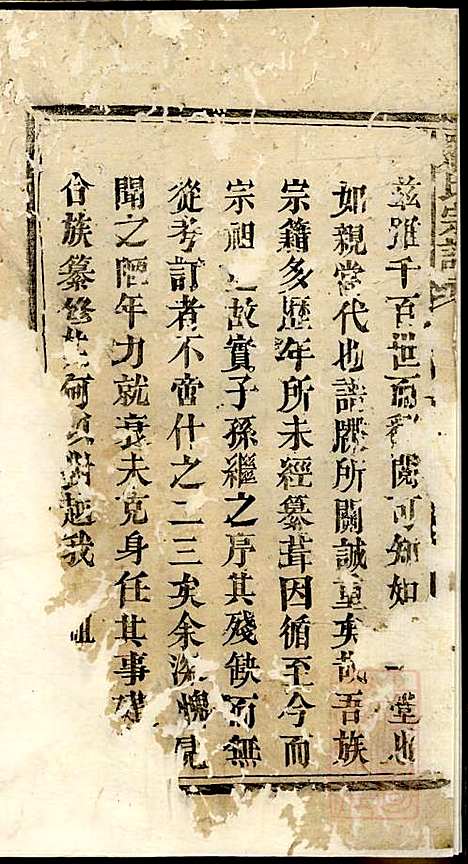 氏宗譜
玆雖千百世而 閱可知如 一堂也
如親當代也譜牒所關誠重矣哉吾族
宗籍多歷年所未經纂葺因循至今而
宗祖 故實子孫繼之序其殘缺而無
從考訂者不啻什之二三矣余深愧見
聞之陋年力就衰未克身任其事
合族纂修 何 對起我 祖